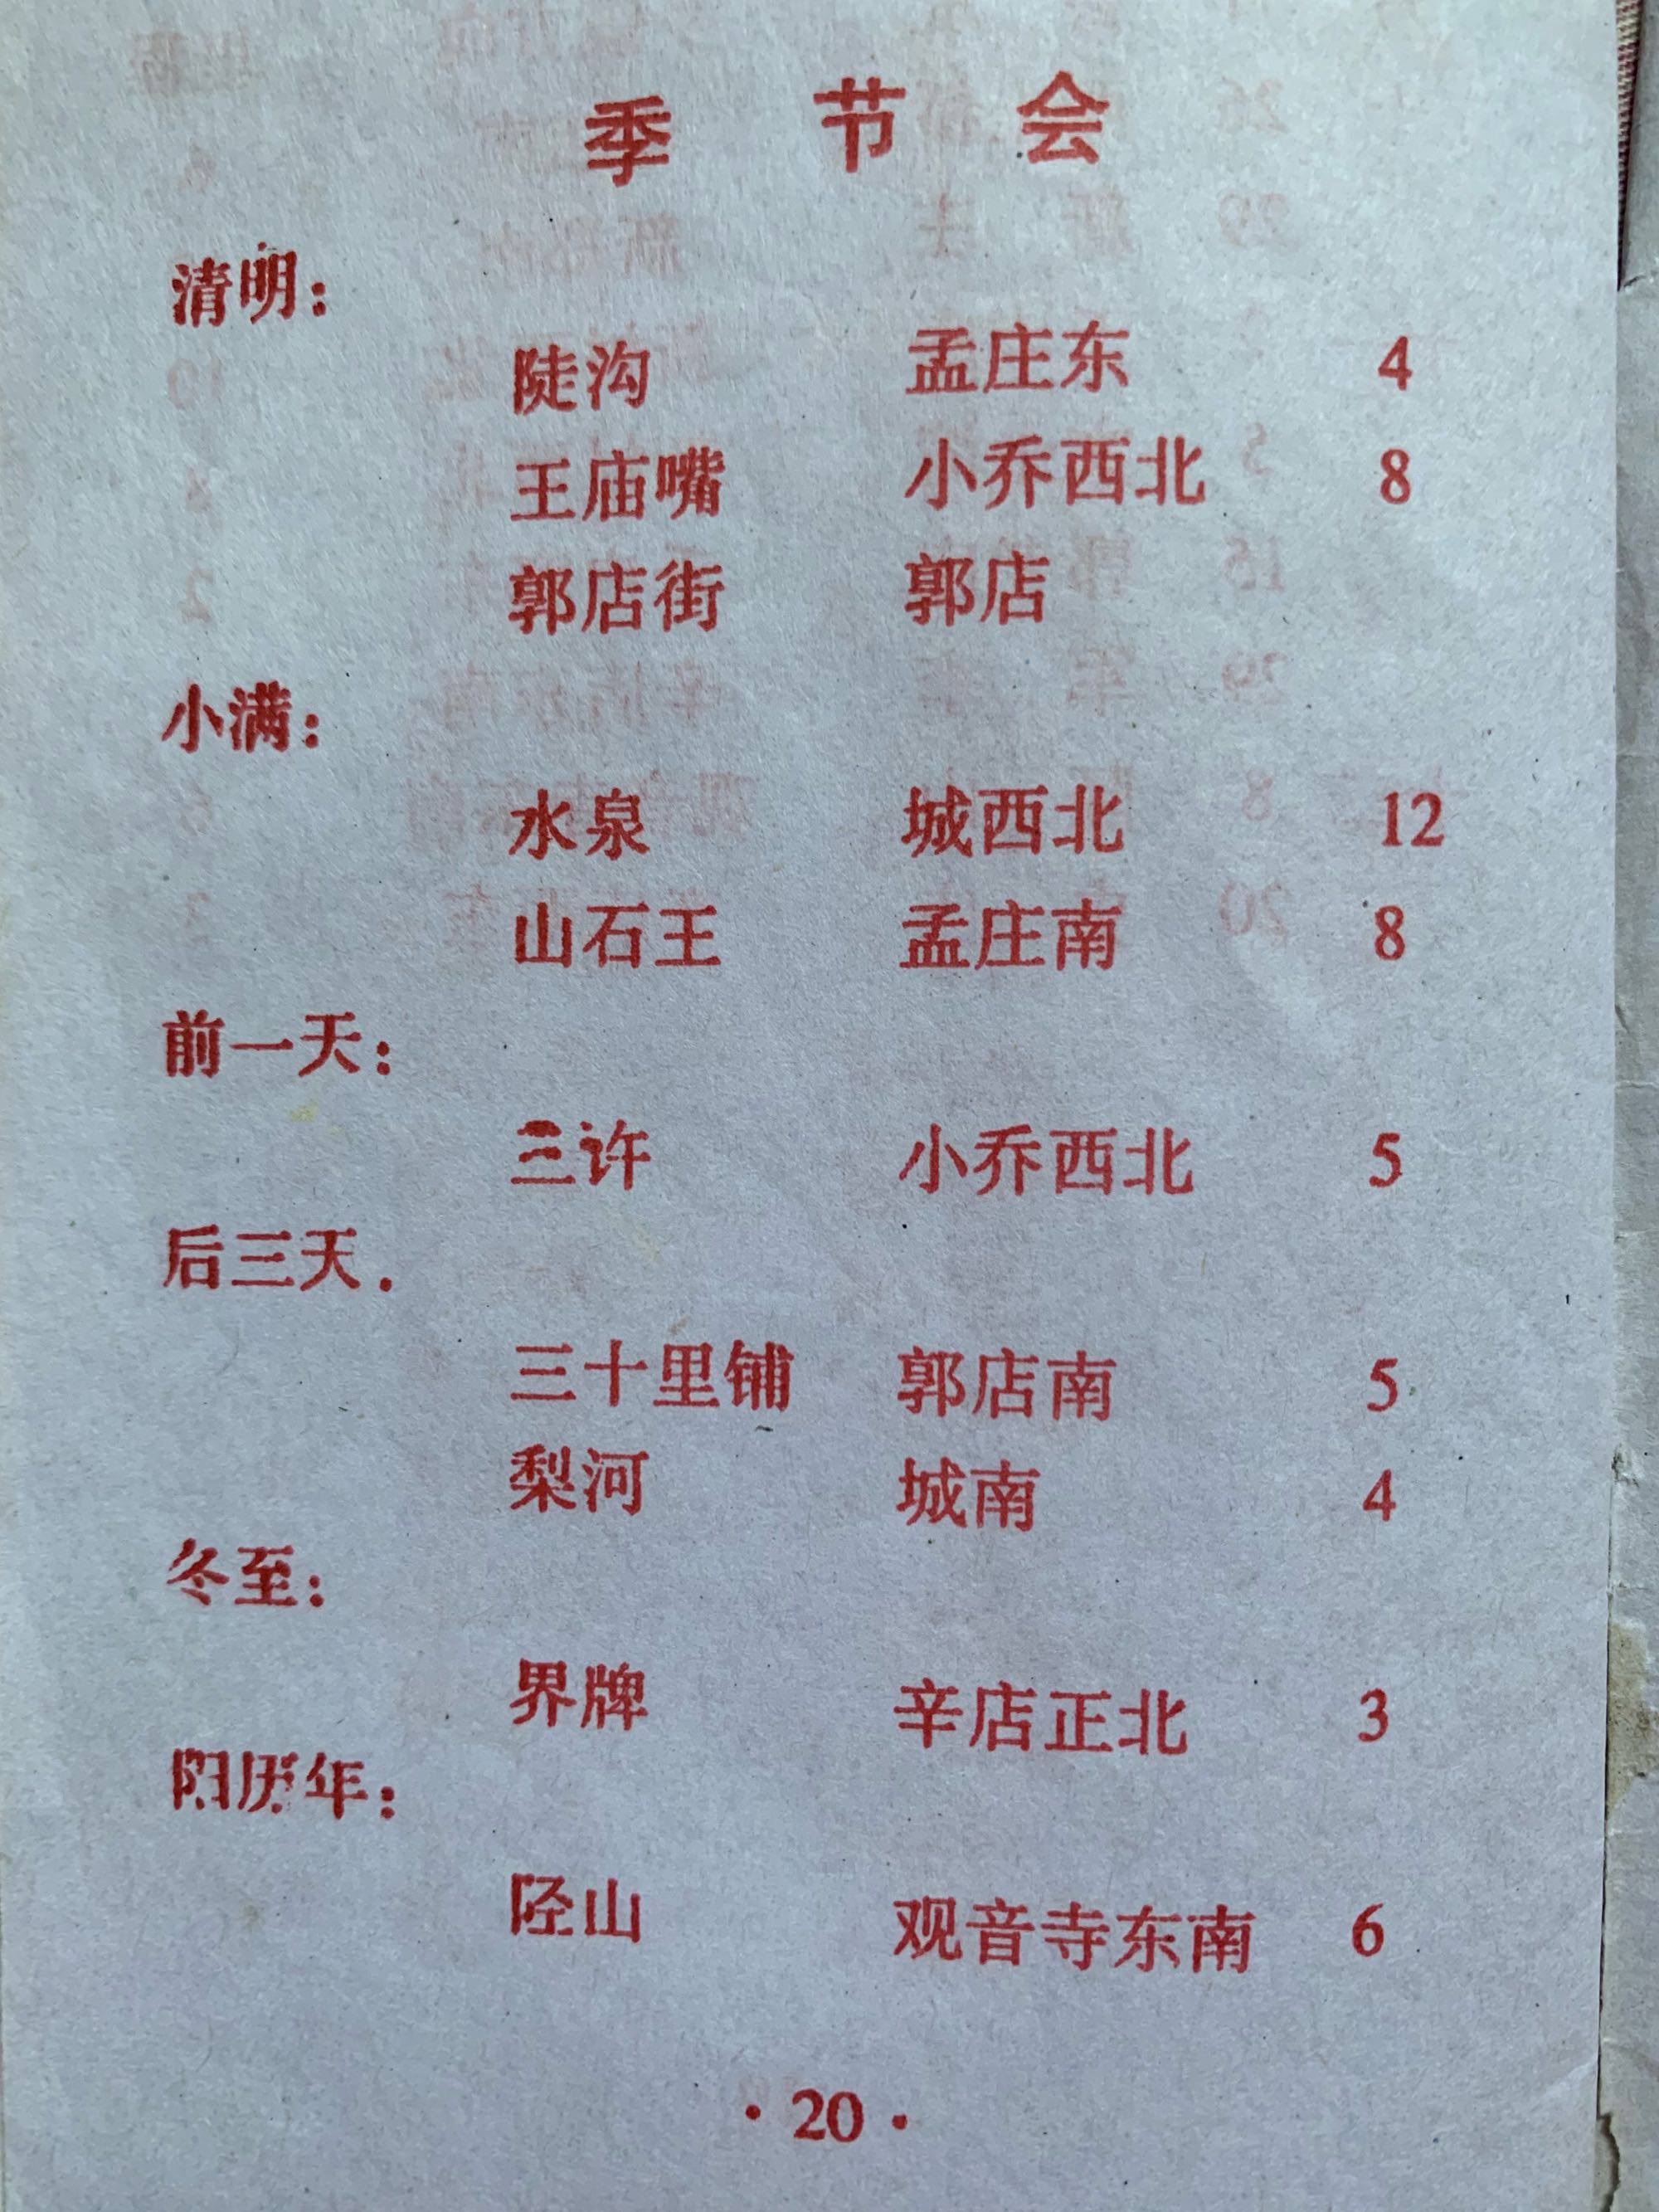 季节会
清明：
陡沟 孟庄东 4
王庙嘴 小乔西北 8
郭店街 郭店
小满：
水泉 城西北 12
山石王 孟庄南 8
前一天：
三许 小乔西北 5
后三天.
三十里铺 郭店南 5
梨河 城南 4
冬至：
界牌 辛店正北 3
阳历年：
陉山 观音寺东南 6
·20·